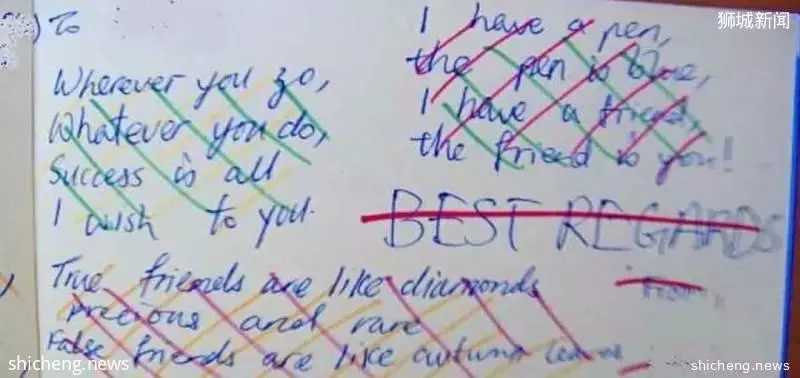 狮城新闻
To
Wherever you go,
Whatever you do,
Success is all
I wish to you.
I have a pen,
the pen is blue,
I have a friend,
the friend is you!
BEST REGARDS
True friends are like diamonds
precious and rare
False friends are like autumn leaves
From,
shicheng.news
shicheng.news